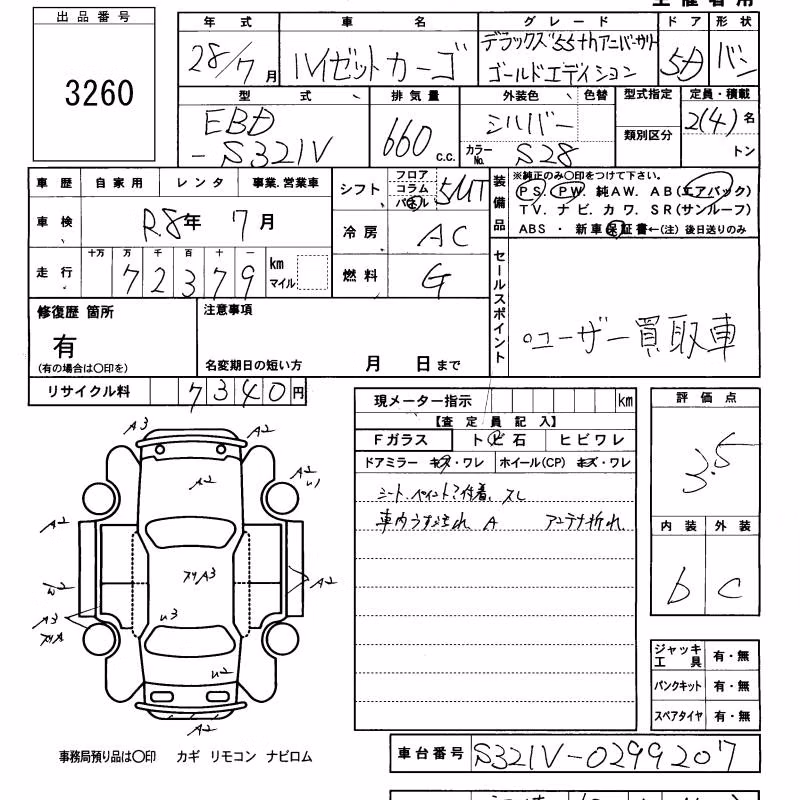 出品番号
3260
年式 車名 グレード ドア 形状
28/7月 ハイゼットカーゴ デラックス"55thアニバーサリー ゴールドエディション 5D バン
型式 排気量 外装色 色替 型式指定 定員・積載
EBD-S321V 660 c.c. シルバー 類別区分 2(4)名
カラーNo. S28 トン
車歴 自家用 レンタ 事業.営業車
車検 R8年 7月
走行 十万 万 千 百 十 一
72379 km マイル
シフト フロア コラム パネル 5MT
冷房 AC
燃料 G
装備品 ※純正のみ〇印をつけて下さい。
PS. PW. 純AW. AB(エアバック)
TV. ナビ. カワ. SR(サンルーフ)
ABS ・ 新車保証書←(注) 後日送りのみ
セールスポイント
○ユーザー買取車
修復歴 箇所
有
(有の場合は〇印を)
注意事項
名変期日の短い方 月 日まで
リサイクル料 7340円
現メーター指示 km
【査定員記入】
Fガラス ト ビ 石 ヒビワレ
ドアミラー キズ・ワレ ホイール(CP) キズ・ワレ
シート. ペイント?付着. スレ
車内うす汚れ A アンテナ折れ
評価点
3.5
内装 外装
b C
A3 A2
A2 A2
A2 A2
A3 A2
A2
ジャッキ工具 有・無
パンクキット 有・無
スペアタイヤ 有・無
事務局預り品は〇印 カギ リモコン ナビロム
車台番号 S321V-0299207